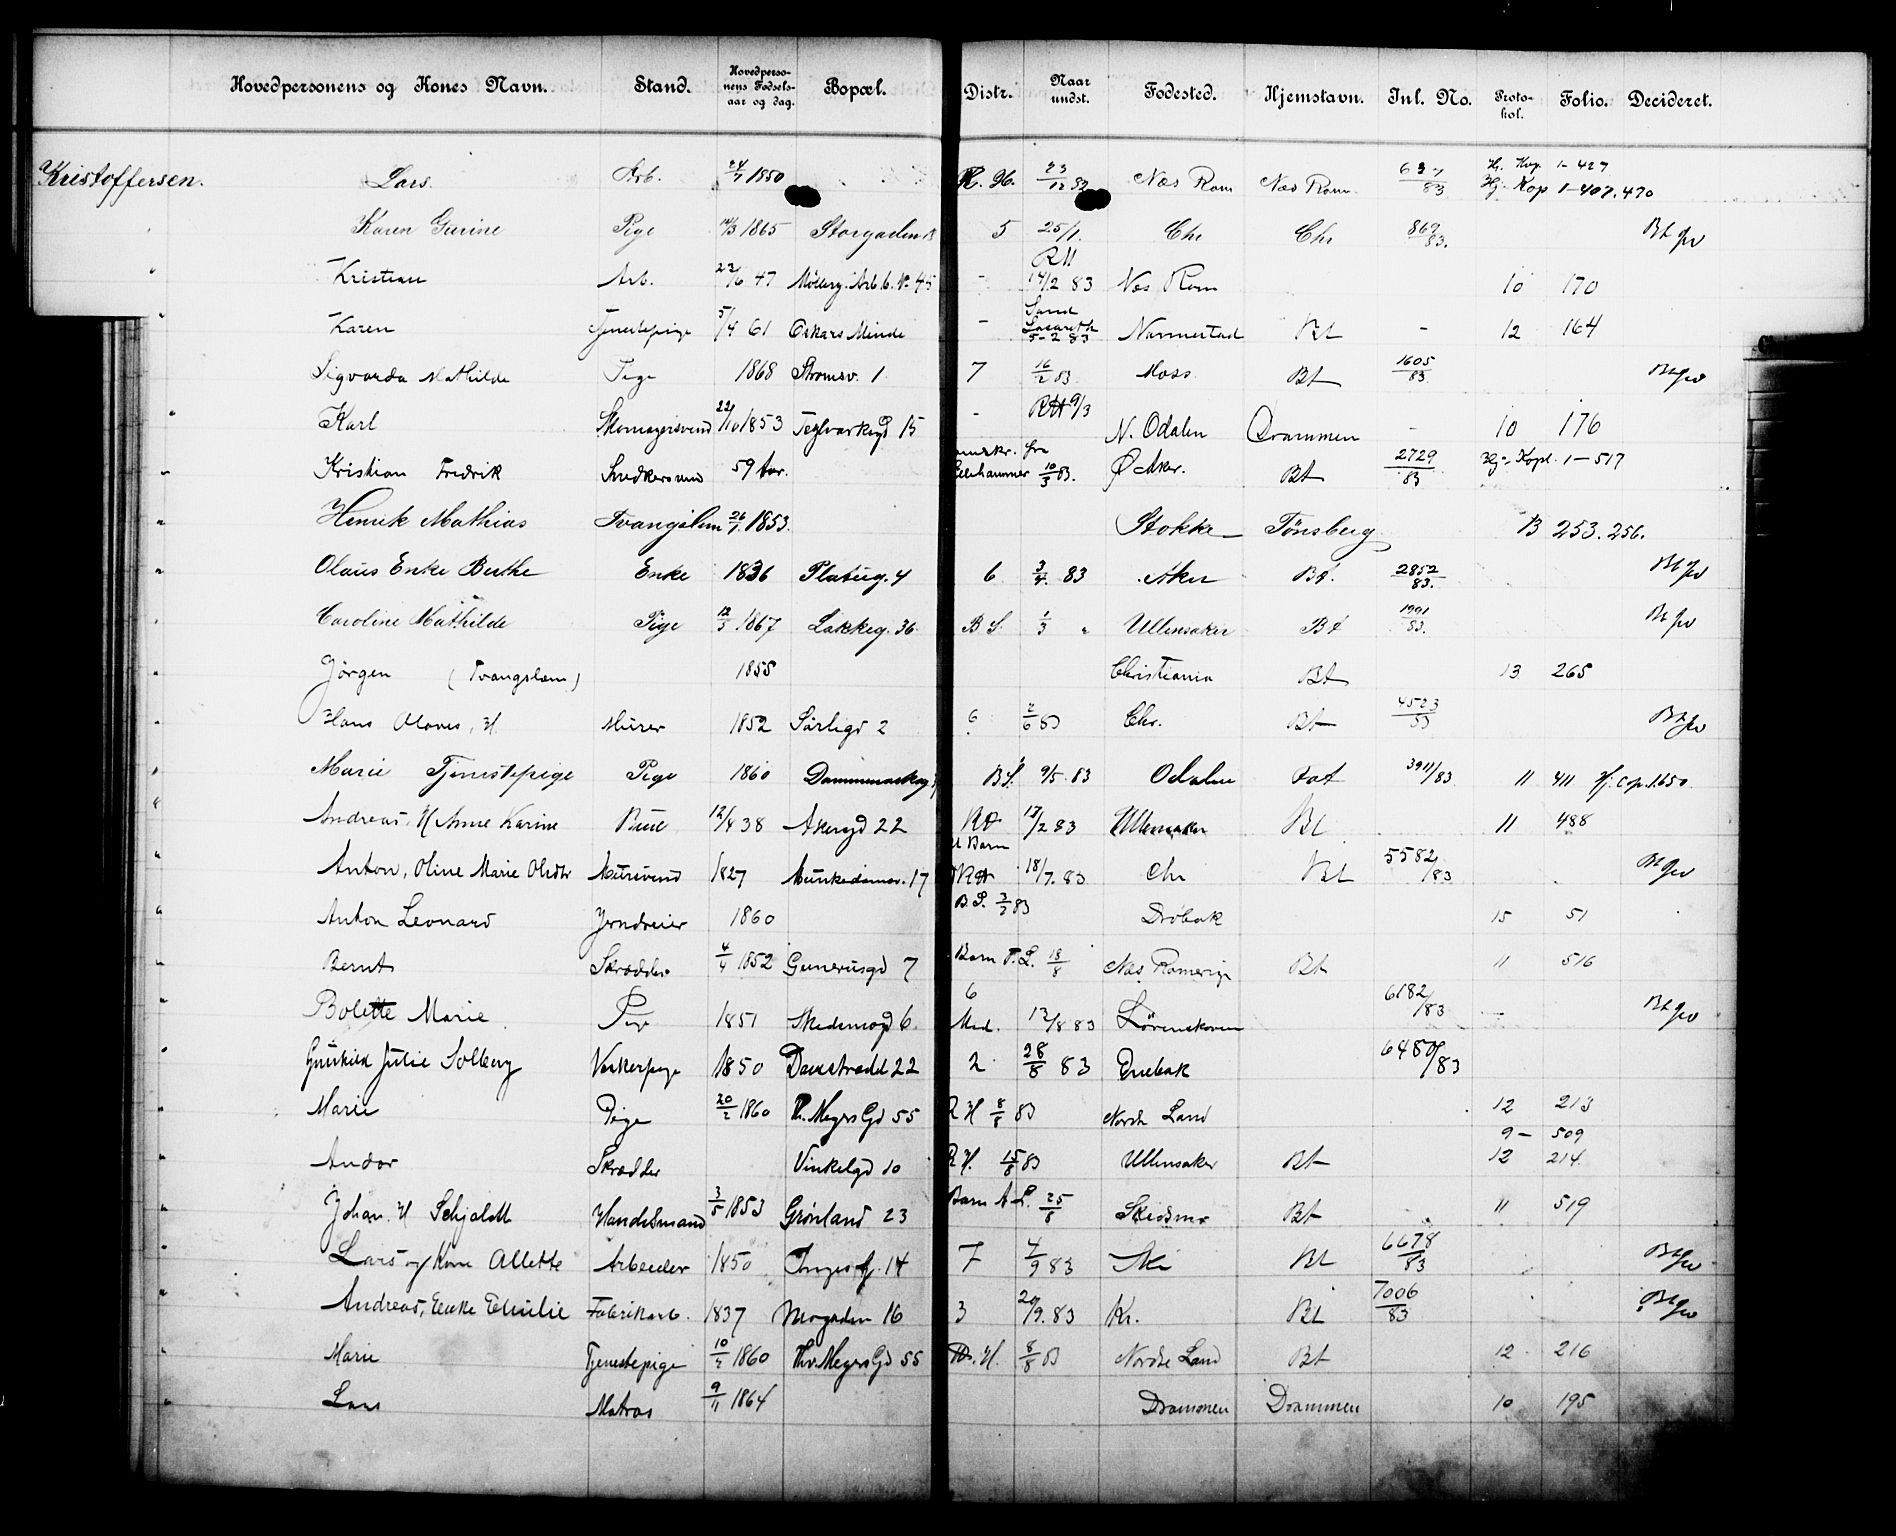 Hovedpersonens og Kones Navn. Stand. Hovedpersonens Fødselsaar og dag. Bopæl. Distr. Naar undst. Fødested. Hjemstavn. Jnl. No. Protokol. Folio. Decideret.
Kristoffersen. Lars Arb. 24/7 1850 R. H. 23/12 82 Næs Rom Næs Rom 637/83 Hj. Kop 1-427
Hj. Kop 1-407.470
Karen Gurine Pige 1865 Storgaden 5 25/1 Chr Chr 869/83. Bt gv
Kristian Arb. 23/6 47 Møllerg. Arb.b. No 45 - RH 14/2 83 Næs Rom 10 170
Karen Tjenestepige 5/4 61 Oskars Minde - Sand Lasareth 5-2 83 Nannestad Bt - 12 164
Sigvarda Mathilde Pige 1868 Strømsv. 1 7 16/2 83 Moss Bt 1605/83. Bt gv
Karl Skomagersvend 22/10 1853 Teglverksgd 15 - RH 9/3 N. Odalen Drammen - 10 176
Kristian Fredrik Snedkersvend 59 aar. fra Lillehammer 10/3 83. Ø Aker. Bt 2729/83 Hj. Kopl. 1-517
Henrik Mathias Tvangslem 26/1 1853. Stokke Tønsberg B 253.256.
Olaus Enke Berthe Enke 1836 Platoug. 4 6 3/4 83 Aker Bt. 2852/83. Bt gv
Caroline Mathilde Pige 12/3 1867 Lakkeg. 36 B S. 1/3 " Ullensaker Bt 1991/83. Bt gv
Jørgen (Tvangslem) 1855 Christiania Bt 13 265
Hans Olaves, H Murer 1852 Sørligd 2 6 2/6 83 Chr. Bt 4523/83 Bt gv
Marie Tjenestepige Pige 1860 B S. 9/5 83 Odalen Fat 3911/83 11 411 Hj. Cop. 1.650
Andreas, H Anne Karine 12/4 38 Akersgd 22 17/2 83 Ullensaker Bt 11 488
Anton, Oline Marie Olsdtr Murersvend 1827 Munkedamsv. 17 Barn RH 18/7. 83 Chr Bt 5582/83 Bt gv
Anton Leonard Jerndreier 1860 B. S. 3/2 83 Drøbak 15 51
Bernt Skrædder 4/4 1852 Gunerusgd 7 Barn F. L. 18/8 Næs Romerige Bt 11 516
Bolette Marie Pige 1851 Skedsmogd 6 6 Med. 13/8 83 Lørenskoven 6182/83 - Bt gv
Gunhild Julie Solberg Vaskerpige 1850 Damstrædd 22 2 28/8 83 Enebak 6480/83
Marie Pige 20/2 1860 Th. Meyers Gd 55 R H 8/8 83 Nordre Land 12 213
9 - 509
Andor Skrædder Vinkelgd 10 R H. 15/8 83 Ullensaker Bt 12 214.
Johan. H Schjoldt Handelsmand 3/5 1853 Grønland 23 Barn A L. 25/8 Skedsmo Bt 11 519
Lars og Kone Allette Arbeider 1850 Inges g. 14 7 4/9 83 Ski Bt 6678/83 Bt gv
Andreas, Enke Emilie Fabrikarb. 1837 Mogaden 16 3 20/9. 83 Kr. Bt 7006/83 Bt gv
Marie Tjenestepige 10/2 1860 Thv. Meyers Gd 55 R. H. 8/8 83 Nordre Land Bt 12 216
Lars Matros 9/11 1864 Drammen Drammen 10 195